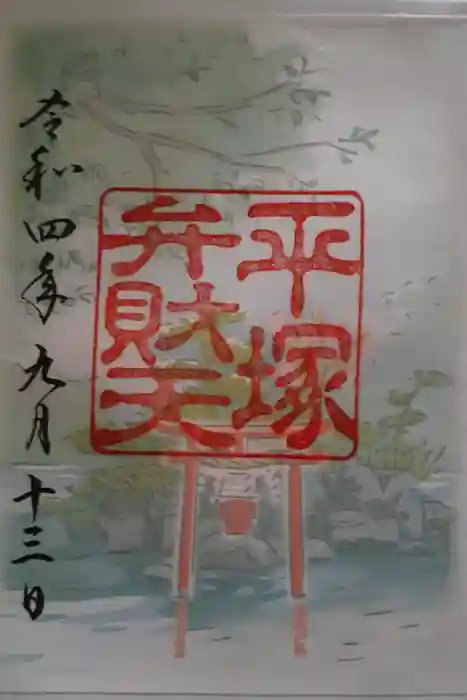 平塚
弁財天
令和四年九月十三日